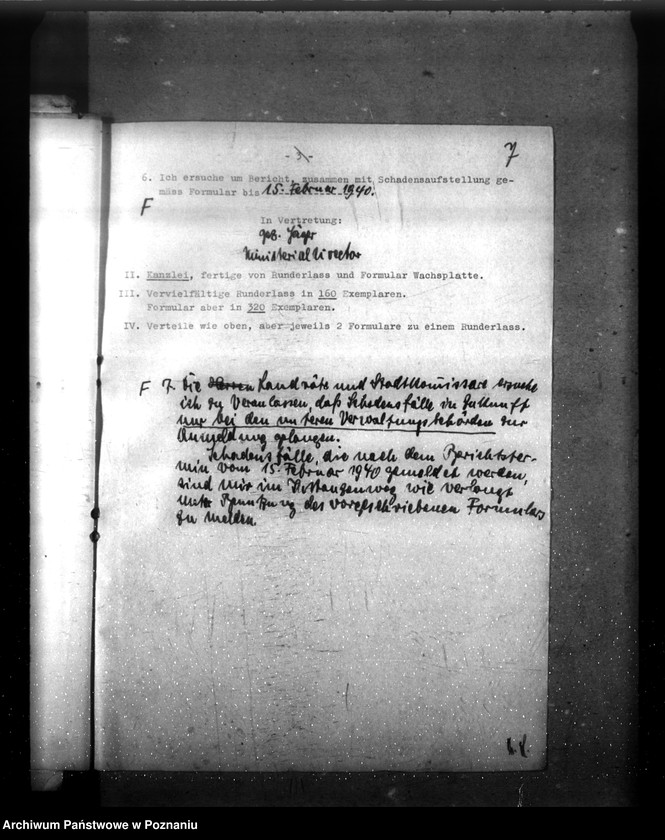 - 3 -
7
6. Ich ersuche um Bericht, zusammen mit Schadensaufstellung ge-
mäss Formular bis 15. Februar 1940.
F
In Vertretung:
gez. Jäger
Ministerialdirector
II. Kanzlei, fertige von Runderlass und Formular Wachsplatte.
III. Vervielfältige Runderlass in 160 Exemplaren.
Formular aber in 320 Exemplaren.
IV. Verteile wie oben, aber jeweils 2 Formulare zu einem Runderlass.
F 7. Die Herren Landräte und Stadtkommissare ersuche
ich zu veranlassen, daß Schadensfälle in Zukunft
nur bei den unteren Verwaltungsbehörden zur
Anmeldung gelangen.
Schadensfälle, die nach dem Berichtster-
min vom 15. Februar 1940 gemeldet werden,
sind mir im wie verlangt
unter Benutzung des vorgeschriebenen Formulars
zu melden.
Archiwum Państwowe w Poznaniu